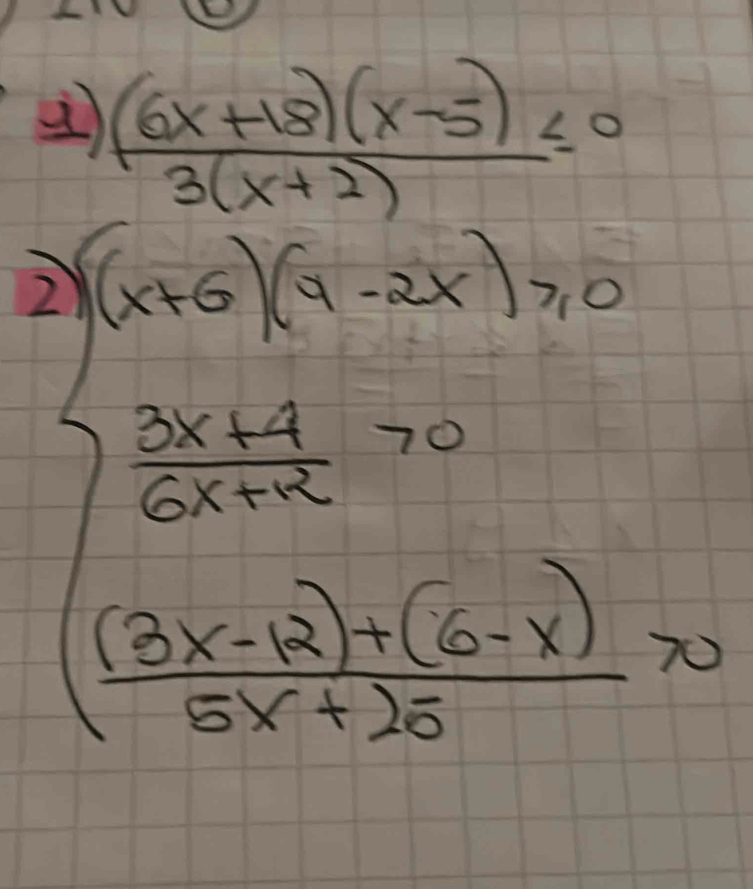 1) (6x+18)(x-5) / 3(x+2) ≤ 0
2) { (x+6)(9-2x) ≥ 0
3x+4 / 6x+12 > 0
(3x-12)+(6-x) / 5x+25 > 0